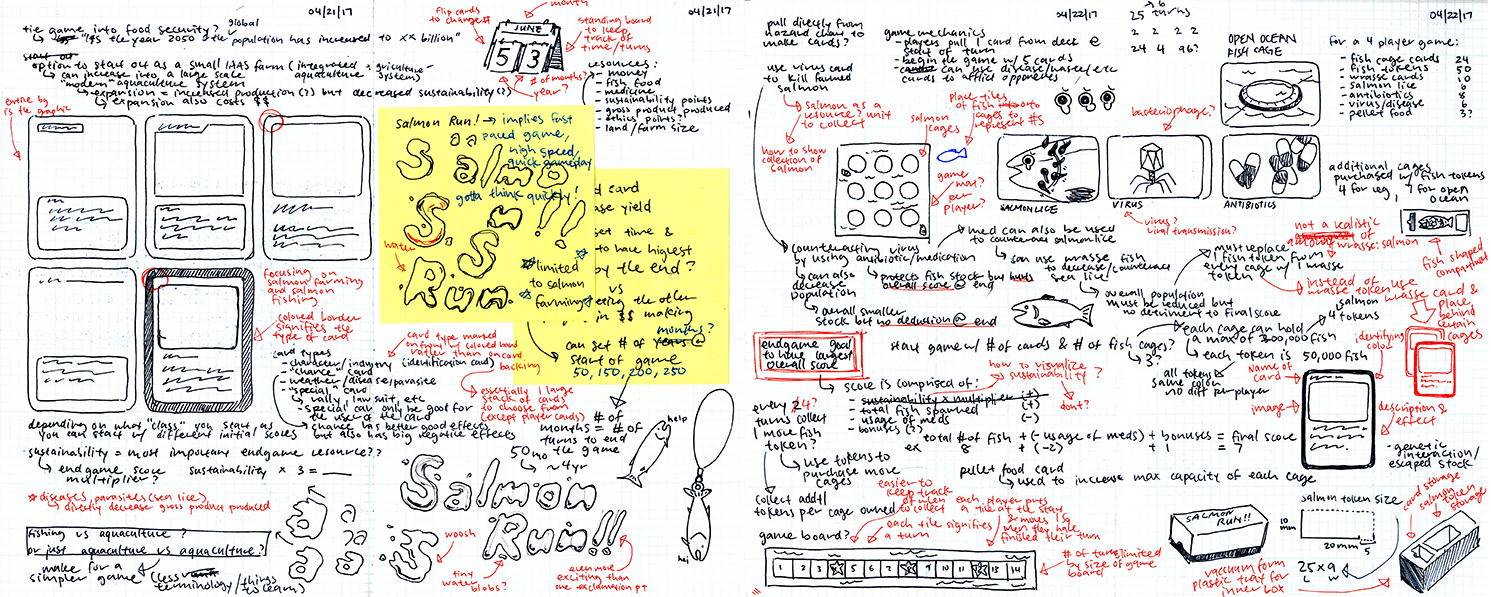 04/21/17
tie game into food security?
global
"It's the year 2050 & the population has increased to xx billion"
start out
option to start out as a small IAAS farm (integrated agriculture-aquaculture system)
can increase into a large scale
"modern" aquaculture system
expansion = increased production (?) but decreased sustainability (?)
expansion also costs $$
entire bg
is the graphic
focusing on
salmon farming
and salmon
fishing
colored border
signifies the
type of card
card types
- character/industry (identification card)
- chance card
- weather/disease/parasite
- special card
rally, lawsuit, etc
- special can only be good for
the user of the card
chance has better good effects
but also has big negative effects
depending on what "class" you start as
you can start w/ different initial scores
sustainability = most important endgame resource??
endgame score
multiplier?
sustainability x 3 =
diseases, parasites (sea lice)
directly decrease gross product produced
fishing vs aquaculture?
or just aquaculture vs aquaculture?
make for a
simpler game (less
terminology/things
to learn)
flip cards
to change #
month
JUNE
5 3
# of months?
year?
standing board
to keep
track of
time/turns
04/21/17
resources:
- money
- fish food
- medicine
- sustainability points
- gross product produced
- ethics points?
- land/farm size
Salmon Run! → implies fast
paced game,
high speed,
quick gameplay
gotta think quickly!
Salmon
Run!!
water
limited
to salmon
farming
card
yield
set time &
to have highest
by the end?
vs
the other
in $$ making
months?
can set # of years @
start of game
50, 150, 200, 250
card type marked
on front w/ colored band
rather than on card
backing
essentially 1 large
stack of cards
to choose from
(except player cards)
# of
months = # of
turns to end
the game
50 mo
~ 4yr
help
hei
Salmon
Run!!
woosh
tiny
water
blobs?
even more
exciting than
one exclamation pt
pull directly from
hazard chart to
make cards?
use virus card
to kill farmed
salmon
salmon as a
resource? unit
to collect
how to show
collection of
salmon
game mechanics
- players pull 1 card from deck @
start of turn
- begin the game w/ 5 cards
- can use disease/wasser/etc
cards to afflict opponents
04/22/17
salmon
cages
place tiles
of fish into
cages to
represent #s
game
mat?
per
player?
25 turns
2 2 2 2
24 4 96?
bacteriophage?
SALMON LICE
VIRUS
ANTIBIOTICS
virus?
viral transmission?
OPEN OCEAN
FISH CAGE
04/22/17
for a 4 player game:
- fish cage cards 24
- fish tokens 50
- wrasse cards 10
- salmon lice 6
- antibiotics 8
- virus/disease 6
- pellet food 3?
additional cages
purchased w/ fish tokens
4 for reg, 1 for open
ocean
fish shaped
compartment
counteracting virus
by using antibiotic/medication
can also
decrease
population
protects fish stock but hurts
overall score @ end
overall smaller
stock but no deduction @ end
med can also be used
to counteract salmon lice
can use wrasse fish
to decrease/counteract
sea lice
overall population
must be reduced but
no detriment to final score
must replace
1 fish token from
every cage w/ 1 wrasse
token
not a realistic
amount of
wrasse:salmon
instead of
wrasse token use
wrasse card &
place
behind
certain
cages
salmon
4 tokens
each cage can hold
a max of 200,000 fish
each token is 50,000 fish
endgame goal
to have largest
overall score
start game w/ # of cards & # of fish cages?
3?
all tokens
same color
no diff per player
score is comprised of:
- sustainability x multiplier (+)
- total fish spawned (+)
- usage of meds (-)
- bonuses (?)
how to visualize
sustainability?
don't?
total # of fish + (- usage of meds) + bonuses = final score
ex 8 + (-2) + 1 = 7
every 2 4?
turns collect
1 more fish
token?
use tokens to
purchase more
cages
collect addtl
tokens per cage owned
pellet food card
used to increase max capacity of each cage
easier to
keep track
of when
to collect
each player puts
a tile at the start
& moves 1 sq
when they have
finished their turn
each tile signifies
a turn
game board?
1 2 3 5 6 7 9 10 11 13 14
# of turns limited
by size of game
board
identifying
color
name of
card
image
description &
effect
- genetic
interaction/
escaped stock
SALMON
RUN!!
vacuum form
plastic tray for
inner box
salmon token size
10
mm
20mm
5
25 x 9
L W
card storage
salmon token
storage